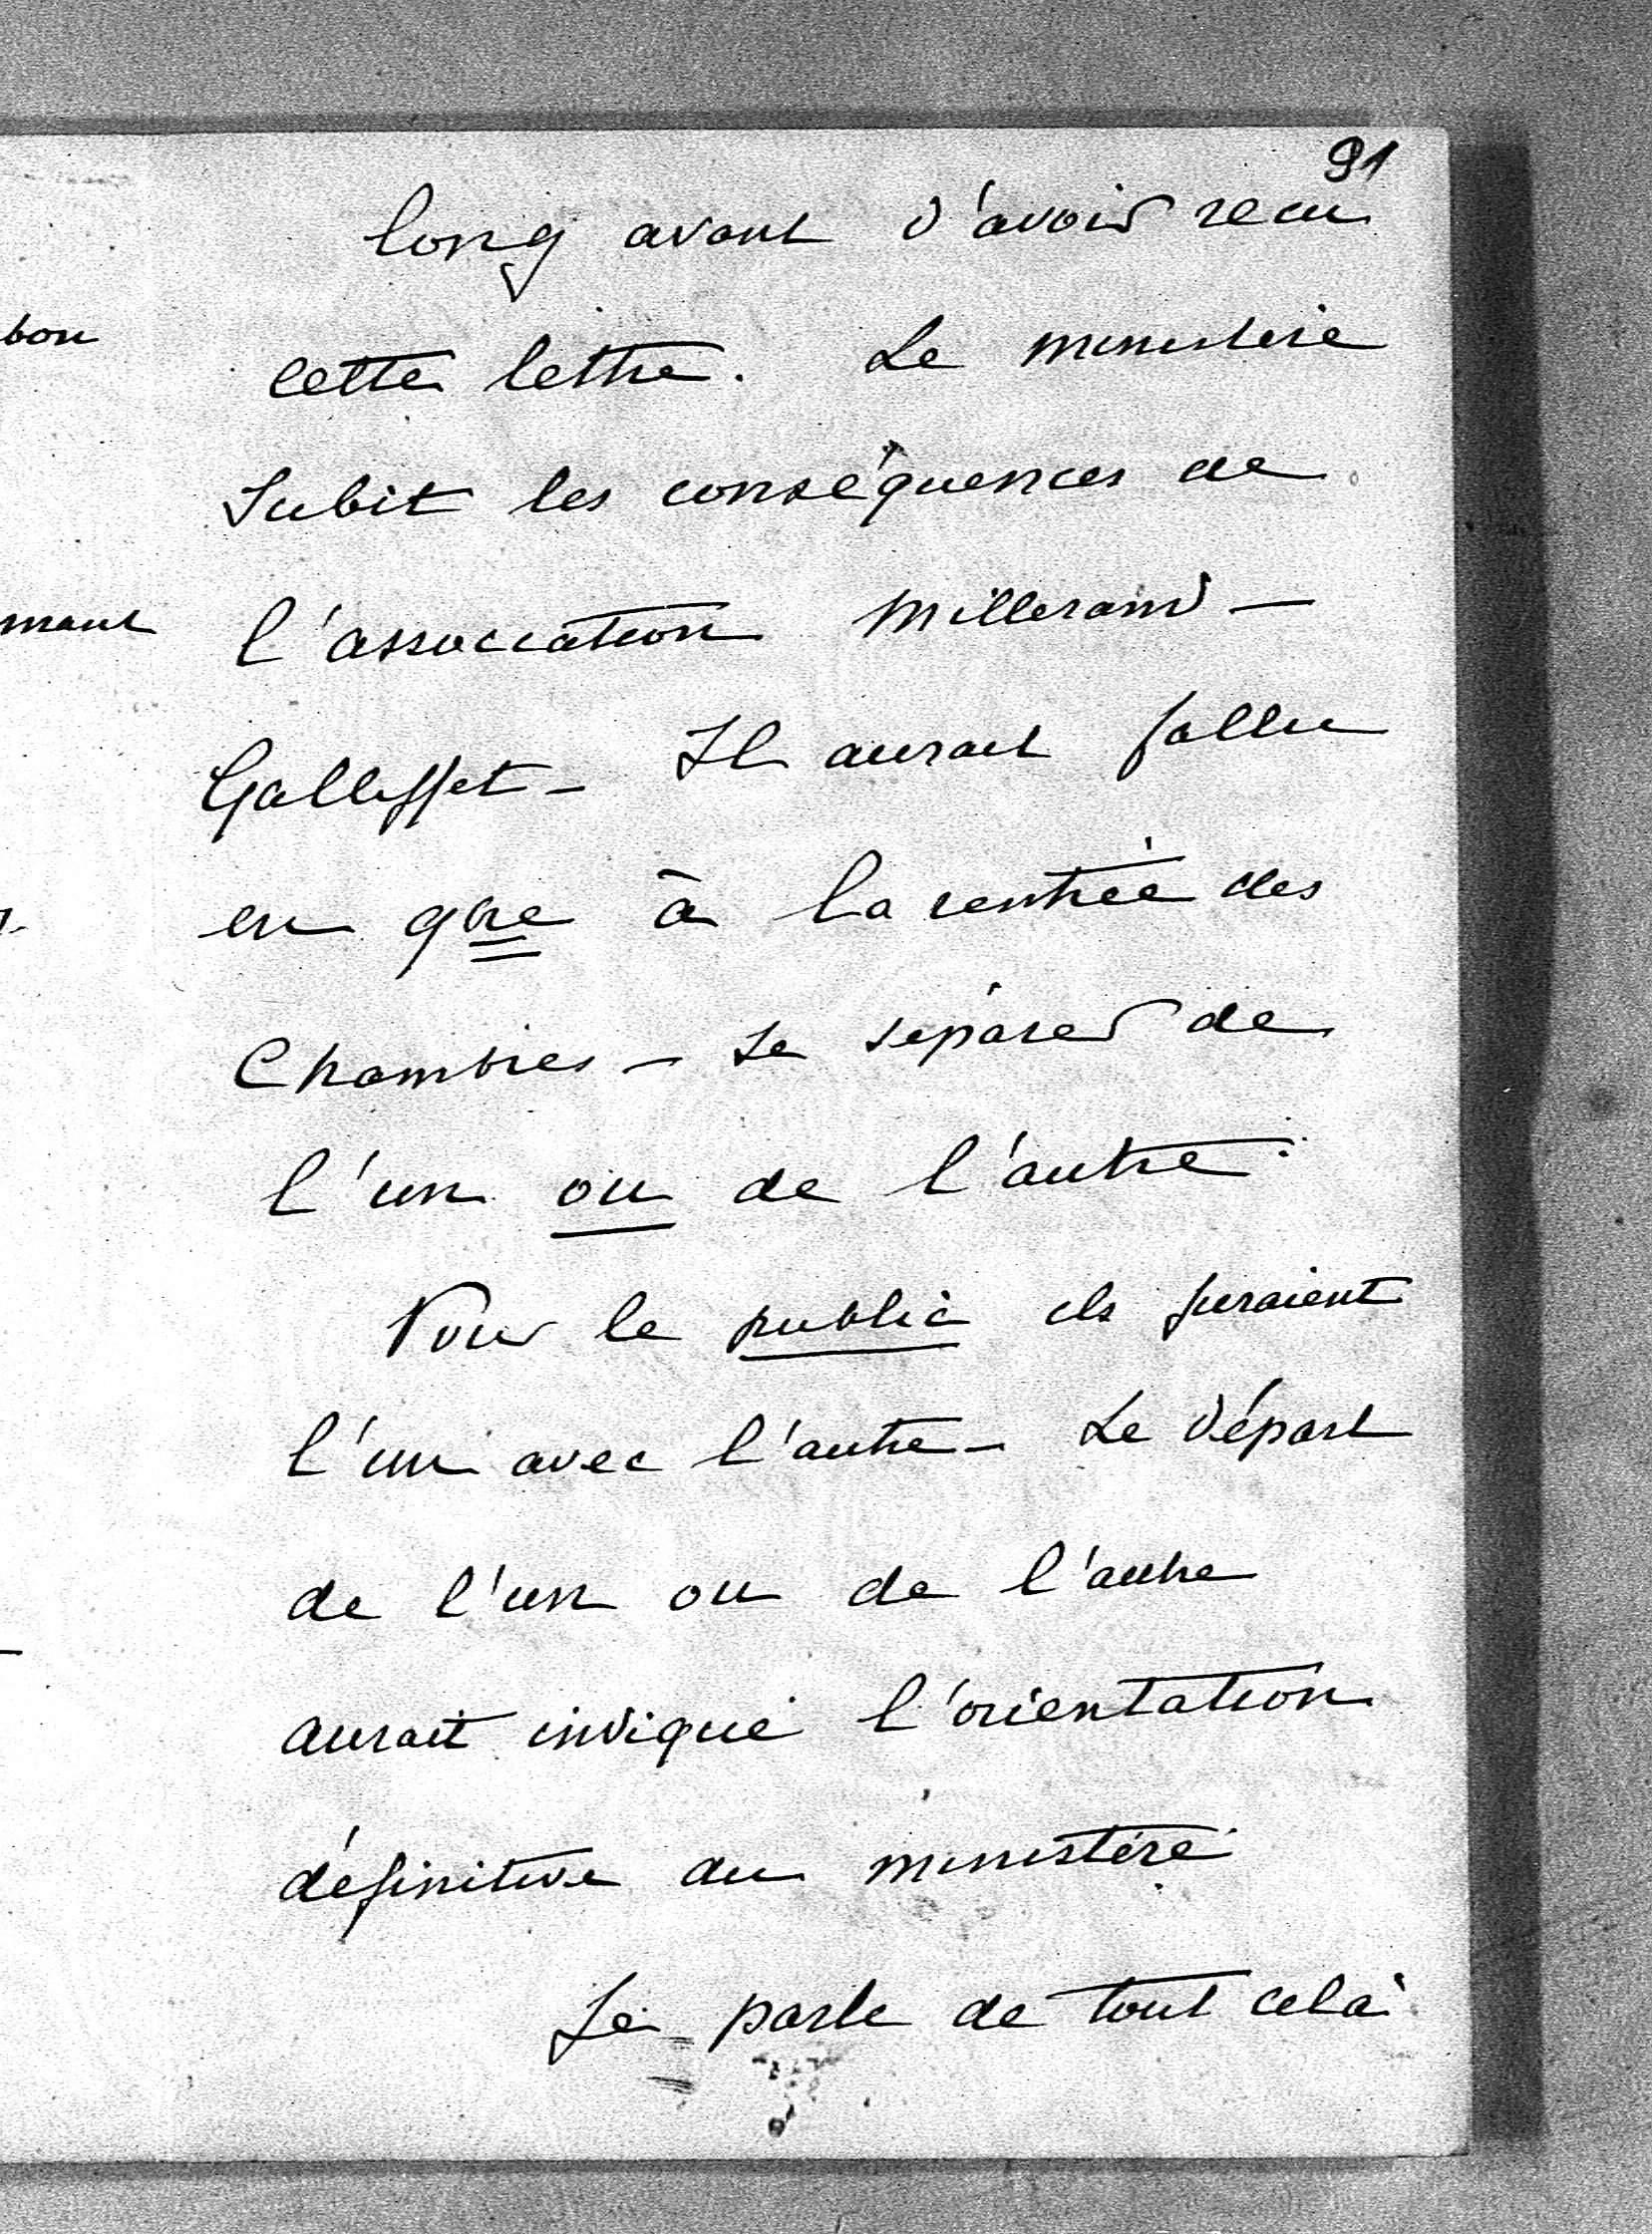 91
long avant d'avoir recu
bon
cette lettre. Le ministère
Subit les conséquences de
mant
l'association Millerand —
Galliffet – Il aurait fallu
en 9bre à la rentrée des
Chambres – se séparer de
l'un ou de l'autre.
Pour le public ils juraient
l'un avec l'autre – Le départ
de l'un ou de l'autre
aurait indiqué l'orientation
définitive du ministère
Je parle de tout cela